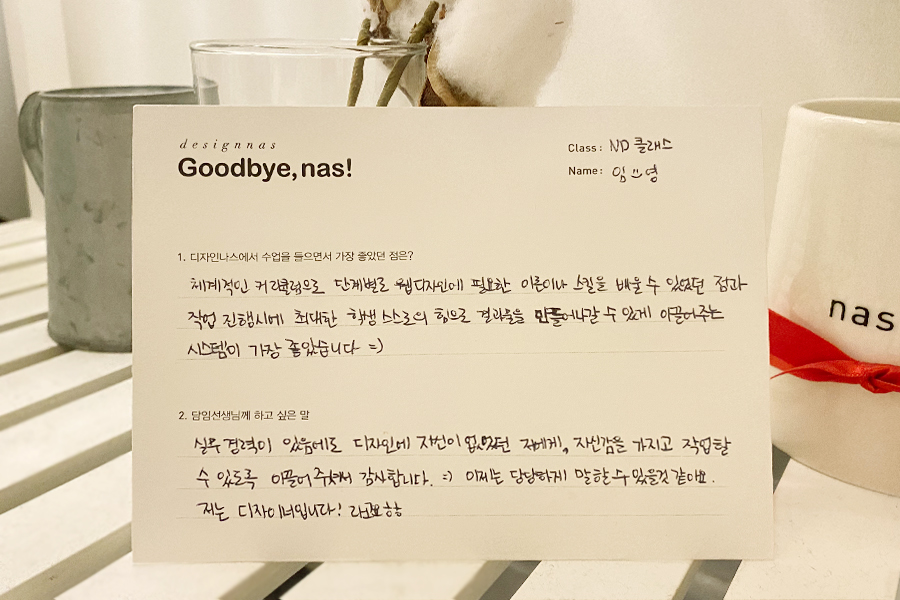 designnas
Goodbye, nas!
Class: ND 클래스
Name: 임 영
1. 디자인나스에서 수업을 들으면서 가장 좋았던 점은?
체계적인 커리큘럼으로 단계별로 웹디자인에 필요한 이론이나 스킬을 배울 수 있었던 점과
작업 진행시에 최대한 학생 스스로의 힘으로 결과물을 만들어나갈 수 있게 이끌어주는
시스템이 가장 좋았습니다 =)
2. 담임선생님께 하고 싶은 말
실무 경력이 있음에도 디자인에 자신이 없었던 저에게, 자신감을 가지고 작업할
수 있도록 이끌어 주셔서 감사합니다. =) 이제는 당당하게 말할 수 있을것 같아요.
저는 디자이너입니다! 라고요 ㅎㅎ
nas